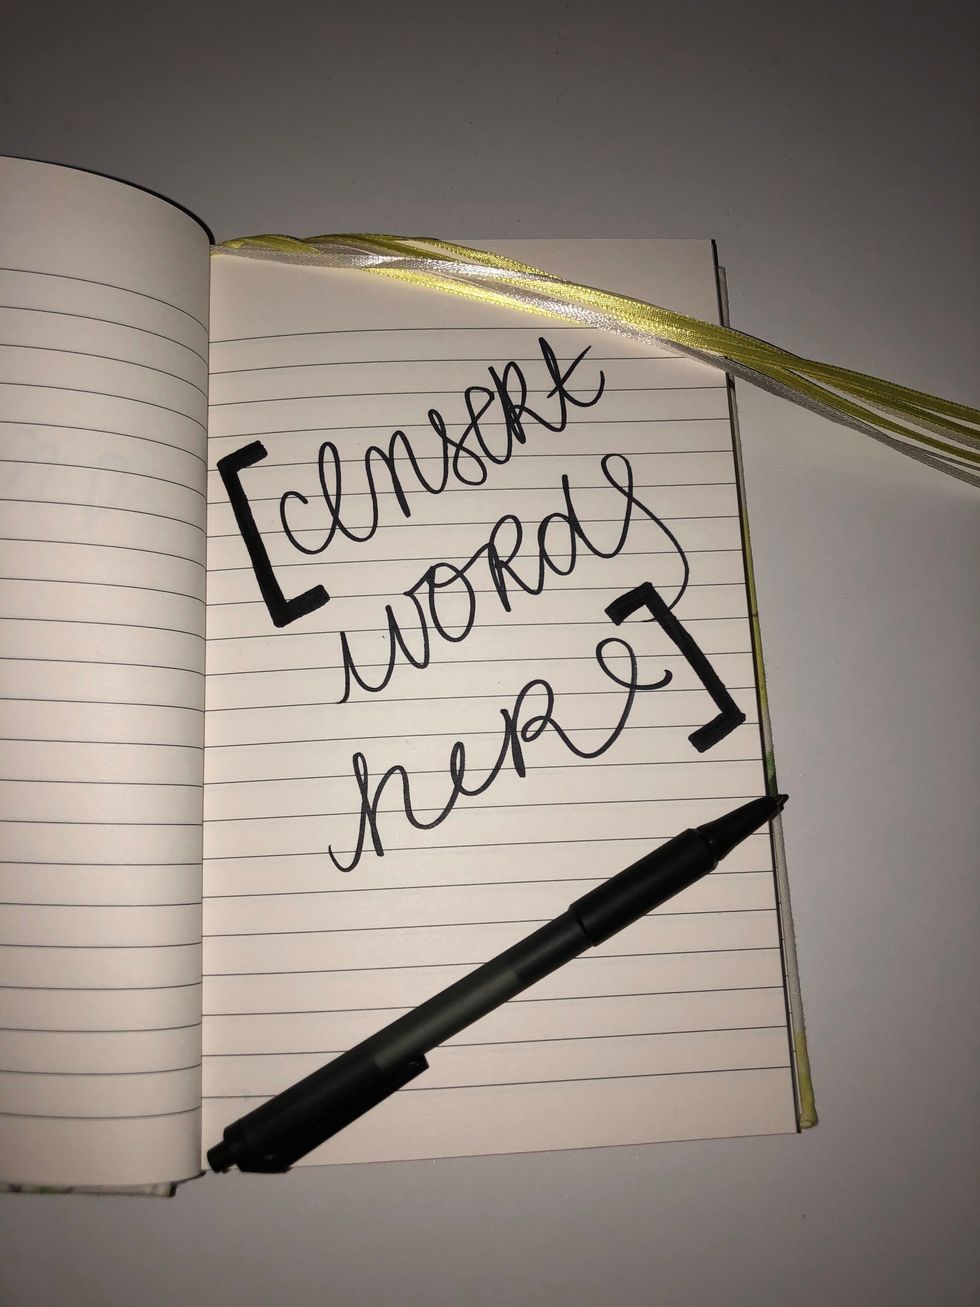 [Insert
words
here]